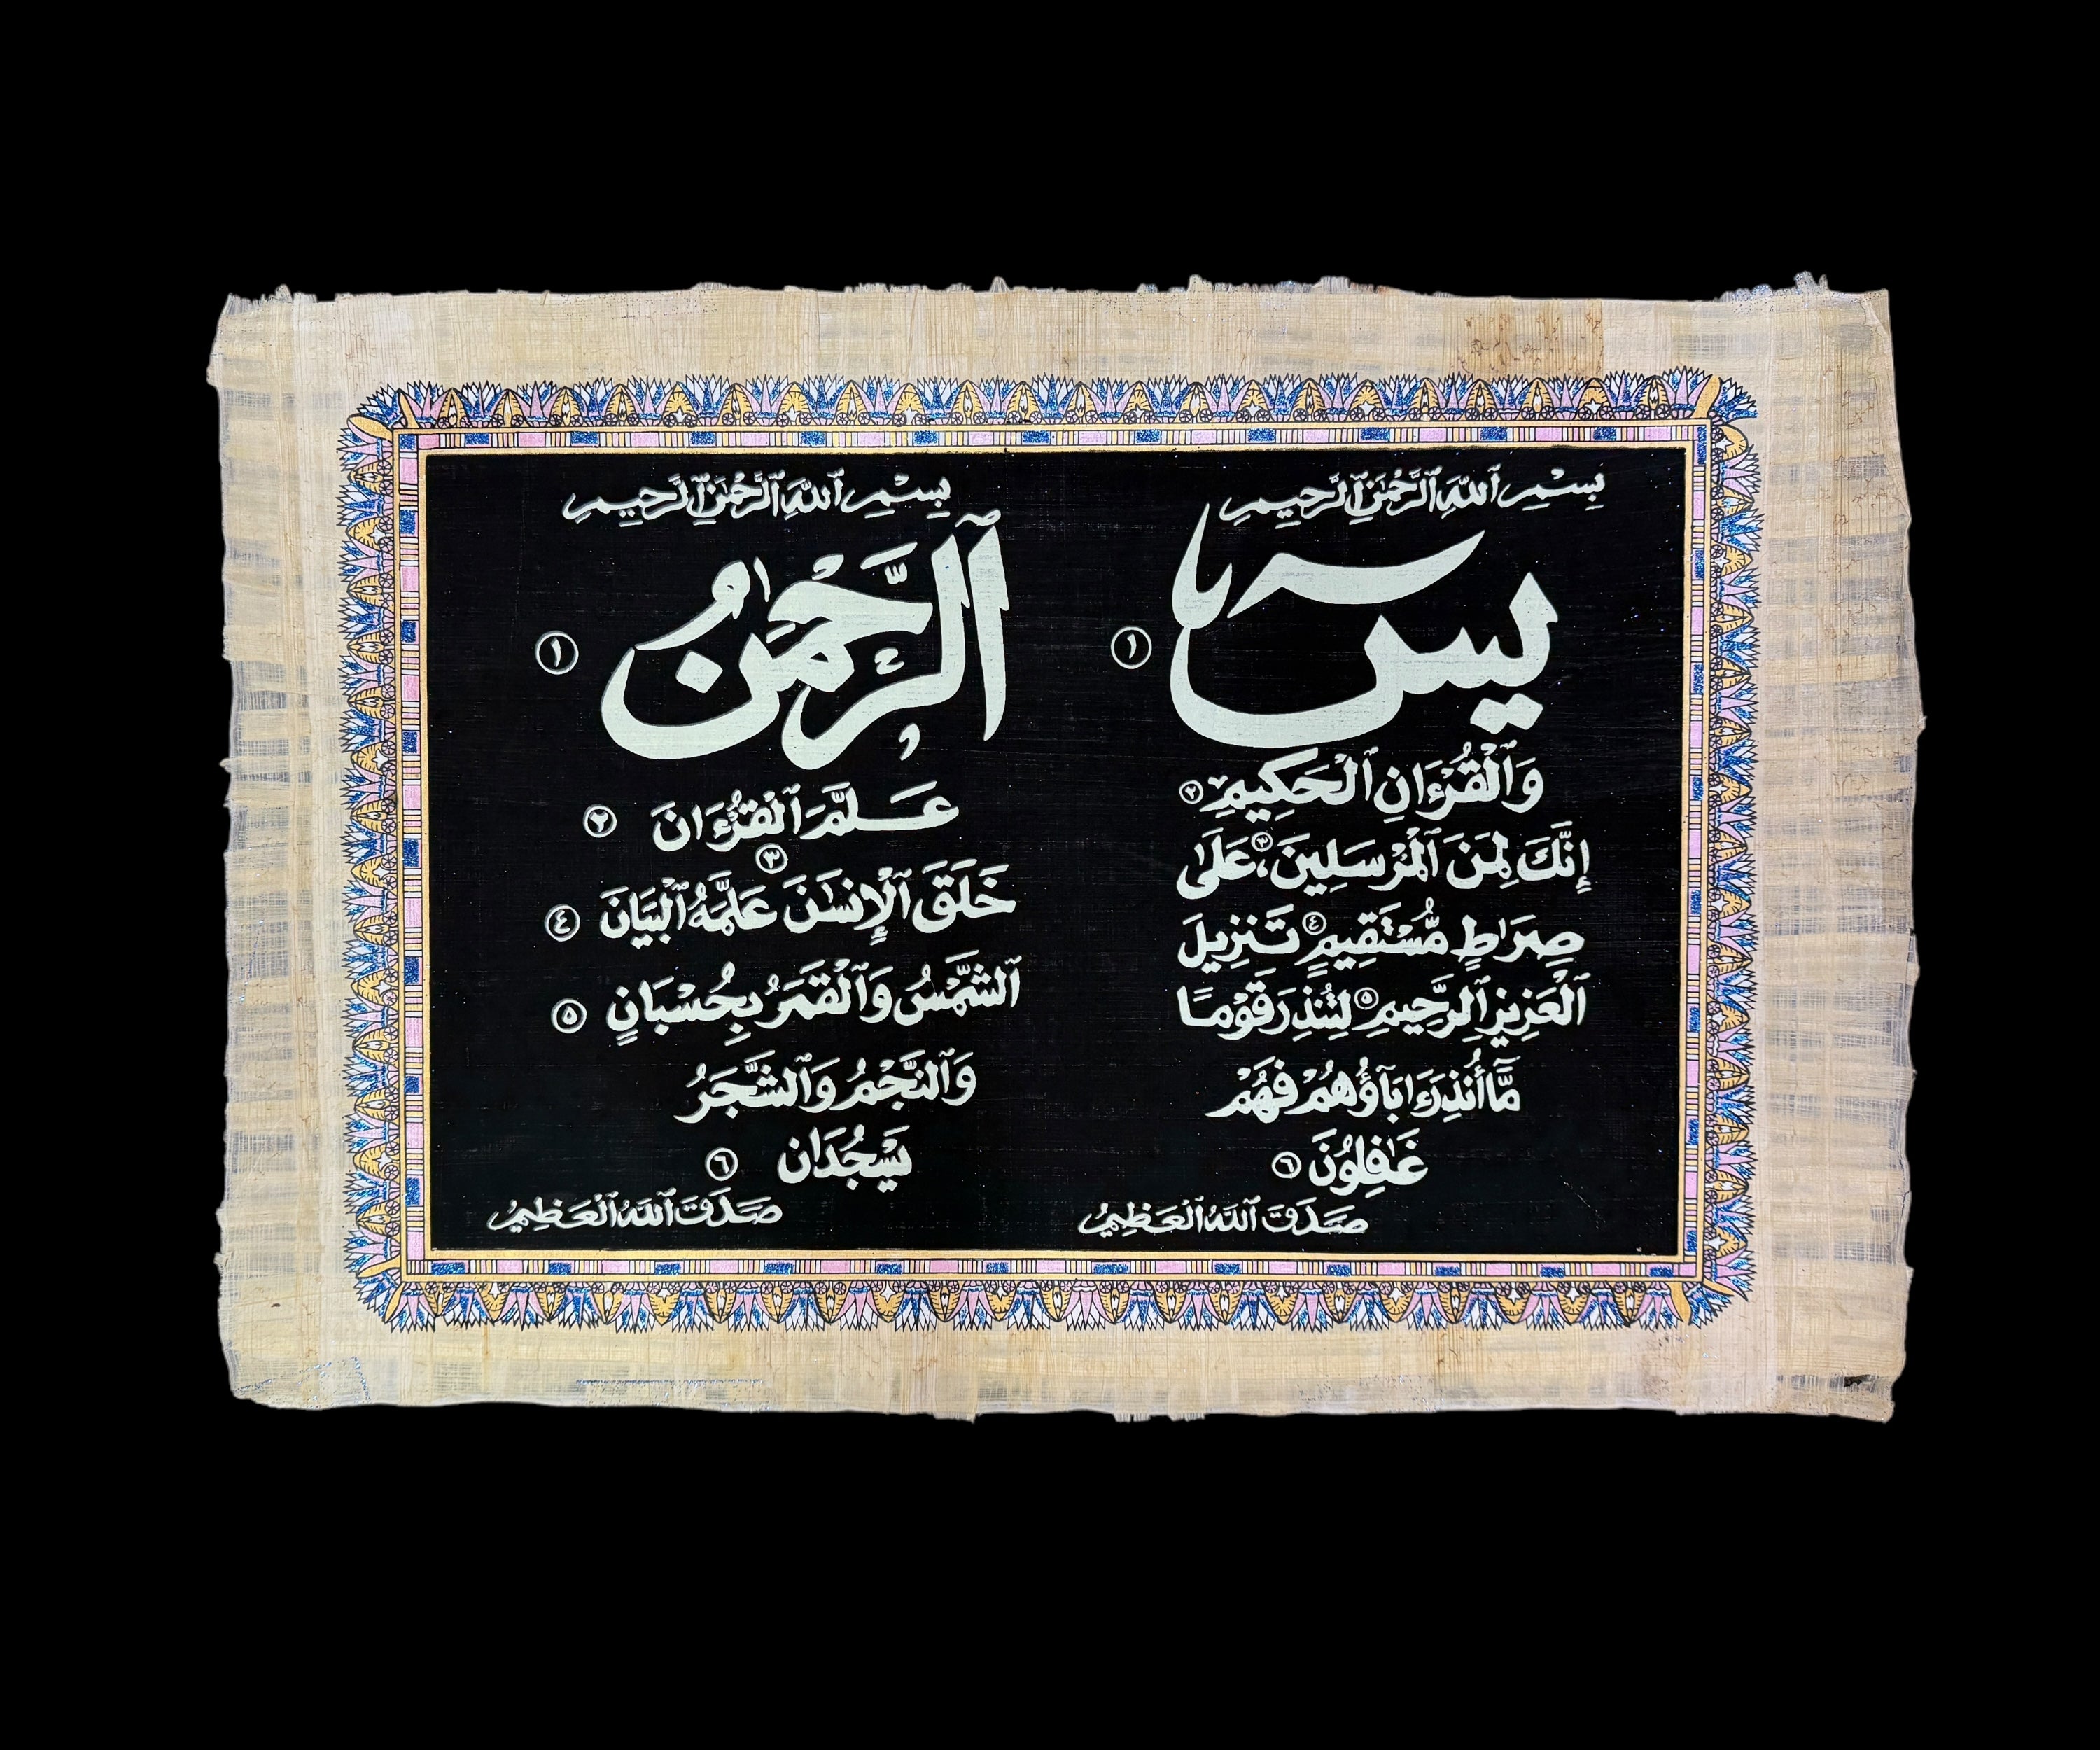 بِسْمِ ٱللَّهِ ٱلرَّحْمَٰنِ ٱلرَّحِيمِ
يسٓ ١
وَٱلْقُرْءَانِ ٱلْحَكِيمِ ٢
إِنَّكَ لَمِنَ ٱلْمُرْسَلِينَ ٣ عَلَىٰ
صِرَٰطٍ مُّسْتَقِيمٍ ٤ تَنزِيلَ
ٱلْعَزِيزِ ٱلرَّحِيمِ ٥ لِتُنذِرَ قَوْمًا
مَّآ أُنذِرَ ءَابَآؤُهُمْ فَهُمْ
غَٰفِلُونَ ٦
صَدَقَ ٱللَّهُ ٱلْعَظِيمُ
بِسْمِ ٱللَّهِ ٱلرَّحْمَٰنِ ٱلرَّحِيمِ
ٱلرَّحْمَٰنُ ١
عَلَّمَ ٱلْقُرْءَانَ ٢
خَلَقَ ٱلْإِنسَٰنَ ٣ عَلَّمَهُ ٱلْبَيَانَ ٤
ٱلشَّمْسُ وَٱلْقَمَرُ بِحُسْبَانٍ ٥
وَٱلنَّجْمُ وَٱلشَّجَرُ
يَسْجُدَان ٦
صَدَقَ ٱللَّهُ ٱلْعَظِيمُ